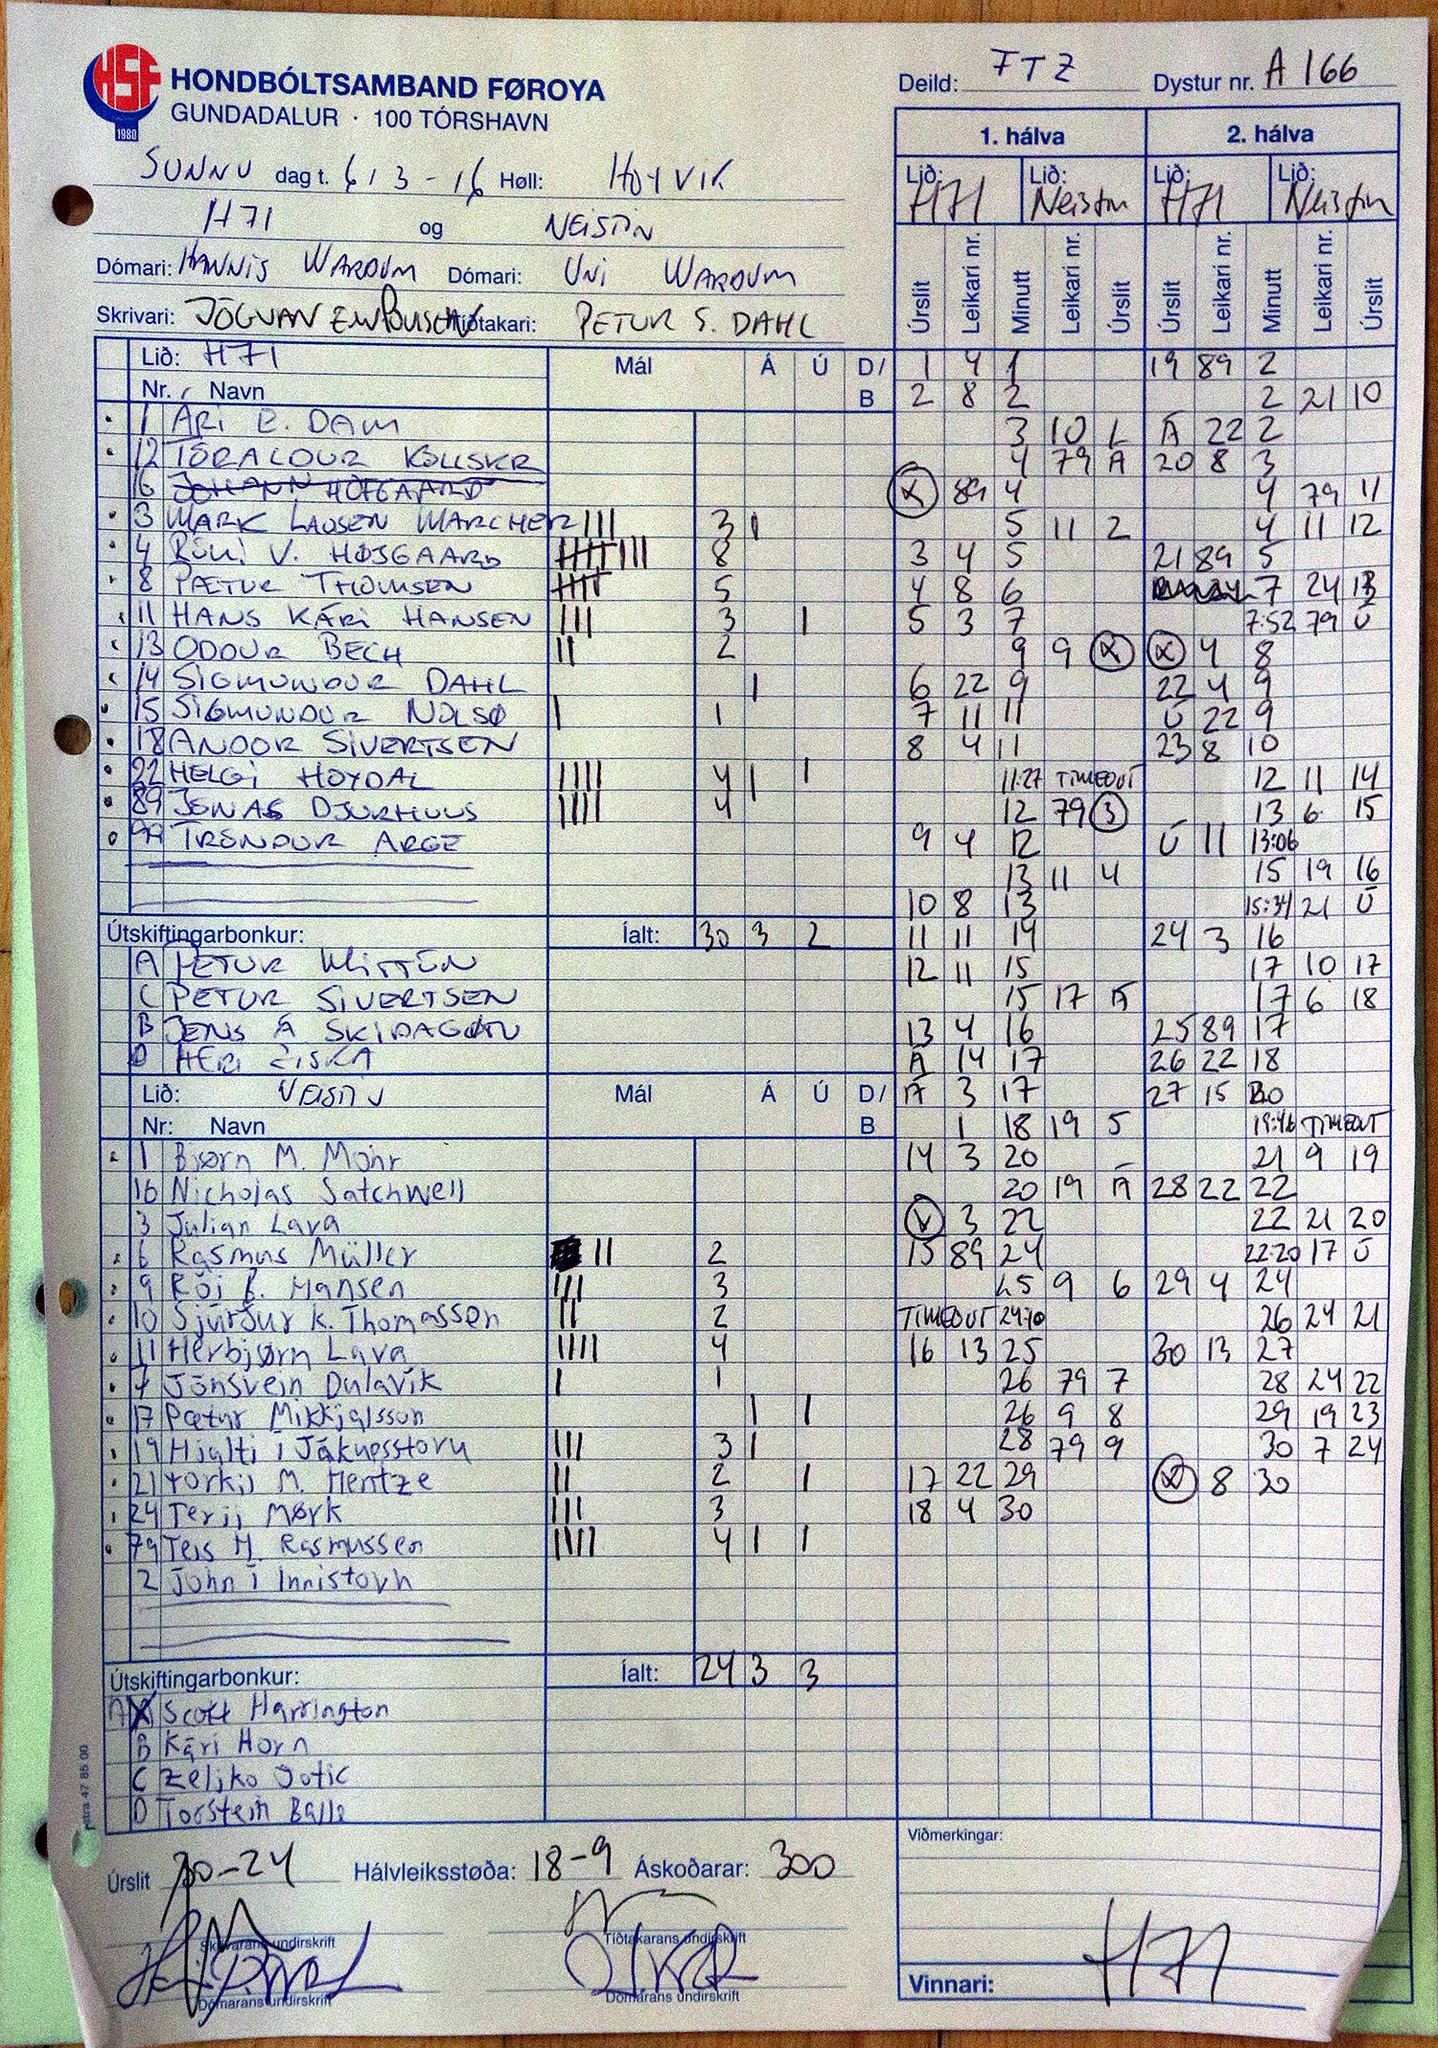 HSF
1980
HONDBÓLTSAMBAND FØROYA
GUNDADALUR · 100 TÓRSHAVN
Deild: FTZ Dystur nr. A 166
SUNNU dag t. 6/3-16 Høll: HOYVIK
H71 og NEISTIN
Dómari: HANNIS WARDUM Dómari: UNI WARDUM
Skrivari: JÓGVAN Tíðtakari: PETUR S. DAHL
1. hálva 2. hálva
Lið: H71 Lið: Neistin Lið: H71 Lið: Neistin
Úrslit Leikari nr. Minutt Leikari nr. Úrslit Úrslit Leikari nr. Minutt Leikari nr. Úrslit
Lið: H71 Mál Á Ú D/
Nr. Navn B
1 ARI E. DAM
12 TÓRALDUR
16 JÓHANN HØJGAARD
3 MARK LAUSEN MARCHER III 3 I
4 RÓKI V. HØJGAARD IIIII III 8
8 PÆTUR THOMSEN IIIII 5
11 HANS KÁRI HANSEN III 3 I
13 ODDUR BECH II 2
14 SIGMUNDUR DAHL I
15 SIGMUNDUR NOLSØ I 1
18 ANDOR SIVERTSEN
22 HELGI HOYDAL IIII 4 I I
89 JÓNAS DJURHUUS IIII 4
99 TRÓNDUR ARGE
Útskiftingarbonkur: Íalt: 30 3 2
A PETUR
C PETUR SIVERTSEN
B JENS Á
D HERI
Lið: Mál Á Ú D/
Nr: Navn B
1 Bjørn M. Mohr
16 Nicholas Satchwell
3 Julian Lava
6 Rasmus Müller II 2
9 Rói B. Hansen III 3
10 Sjúrður K. Thomassen II 2
11 Herbjørn Lava IIII 4
7 Jónsvein Dulavík I 1
17 Pætur Mikkjalsson I I
19 Hjalti í Jákupsstovu III 3 I
21 Torkil M. Hentze II 2 I
24 Terji Mørk III 3
79 Teis H. Rasmussen IIII 4 I I
2 John í Innistovu
Útskiftingarbonkur: Íalt: 24 3 3
A Scott Harrington
B Kári Horn
C Zeljko
D Torstein
1 4 1
2 8 2
3 10 L
4 79 Á
89 4
5 11 2
3 4 5
4 8 6
5 3 7
9 9
6 22 9
7 11 11
8 4 11
11:27 TIMEOUT
12 79 3
9 4 12
13 11 4
10 8 13
11 11 14
12 11 15
15 17 Á
13 4 16
Á 14 17
Á 3 17
1 18 19 5
14 3 20
20 19 Á
3 22
15 89 24
25 9 6
TIMEOUT 24:10
16 13 25
26 79 7
26 9 8
28 79 9
17 22 29
18 4 30
19 89 2
2 21 10
Á 22 2
20 8 3
4 79 11
4 11 12
21 89 5
7 24 13
7:52 79 Ú
4 8
22 4 9
Ú 22 9
23 8 10
12 11 14
13 6 15
Ú 11 13:06
15 19 16
15:34 21 Ú
24 3 16
17 10 17
17 6 18
25 89 17
26 22 18
27 15 20
19:46 TIMEOUT
21 9 19
28 22 22
22 21 20
22:20 17 Ú
29 4 24
26 24 21
30 13 27
28 24 22
29 19 23
30 7 24
8 30
Úrslit 30-24 Hálvleiksstøða: 18-9 Áskoðarar: 300
Viðmerkingar:
Skrivarans undirskrift Tíðtakarans undirskrift
Dómarans undirskrift Dómarans undirskrift
Vinnari: H71